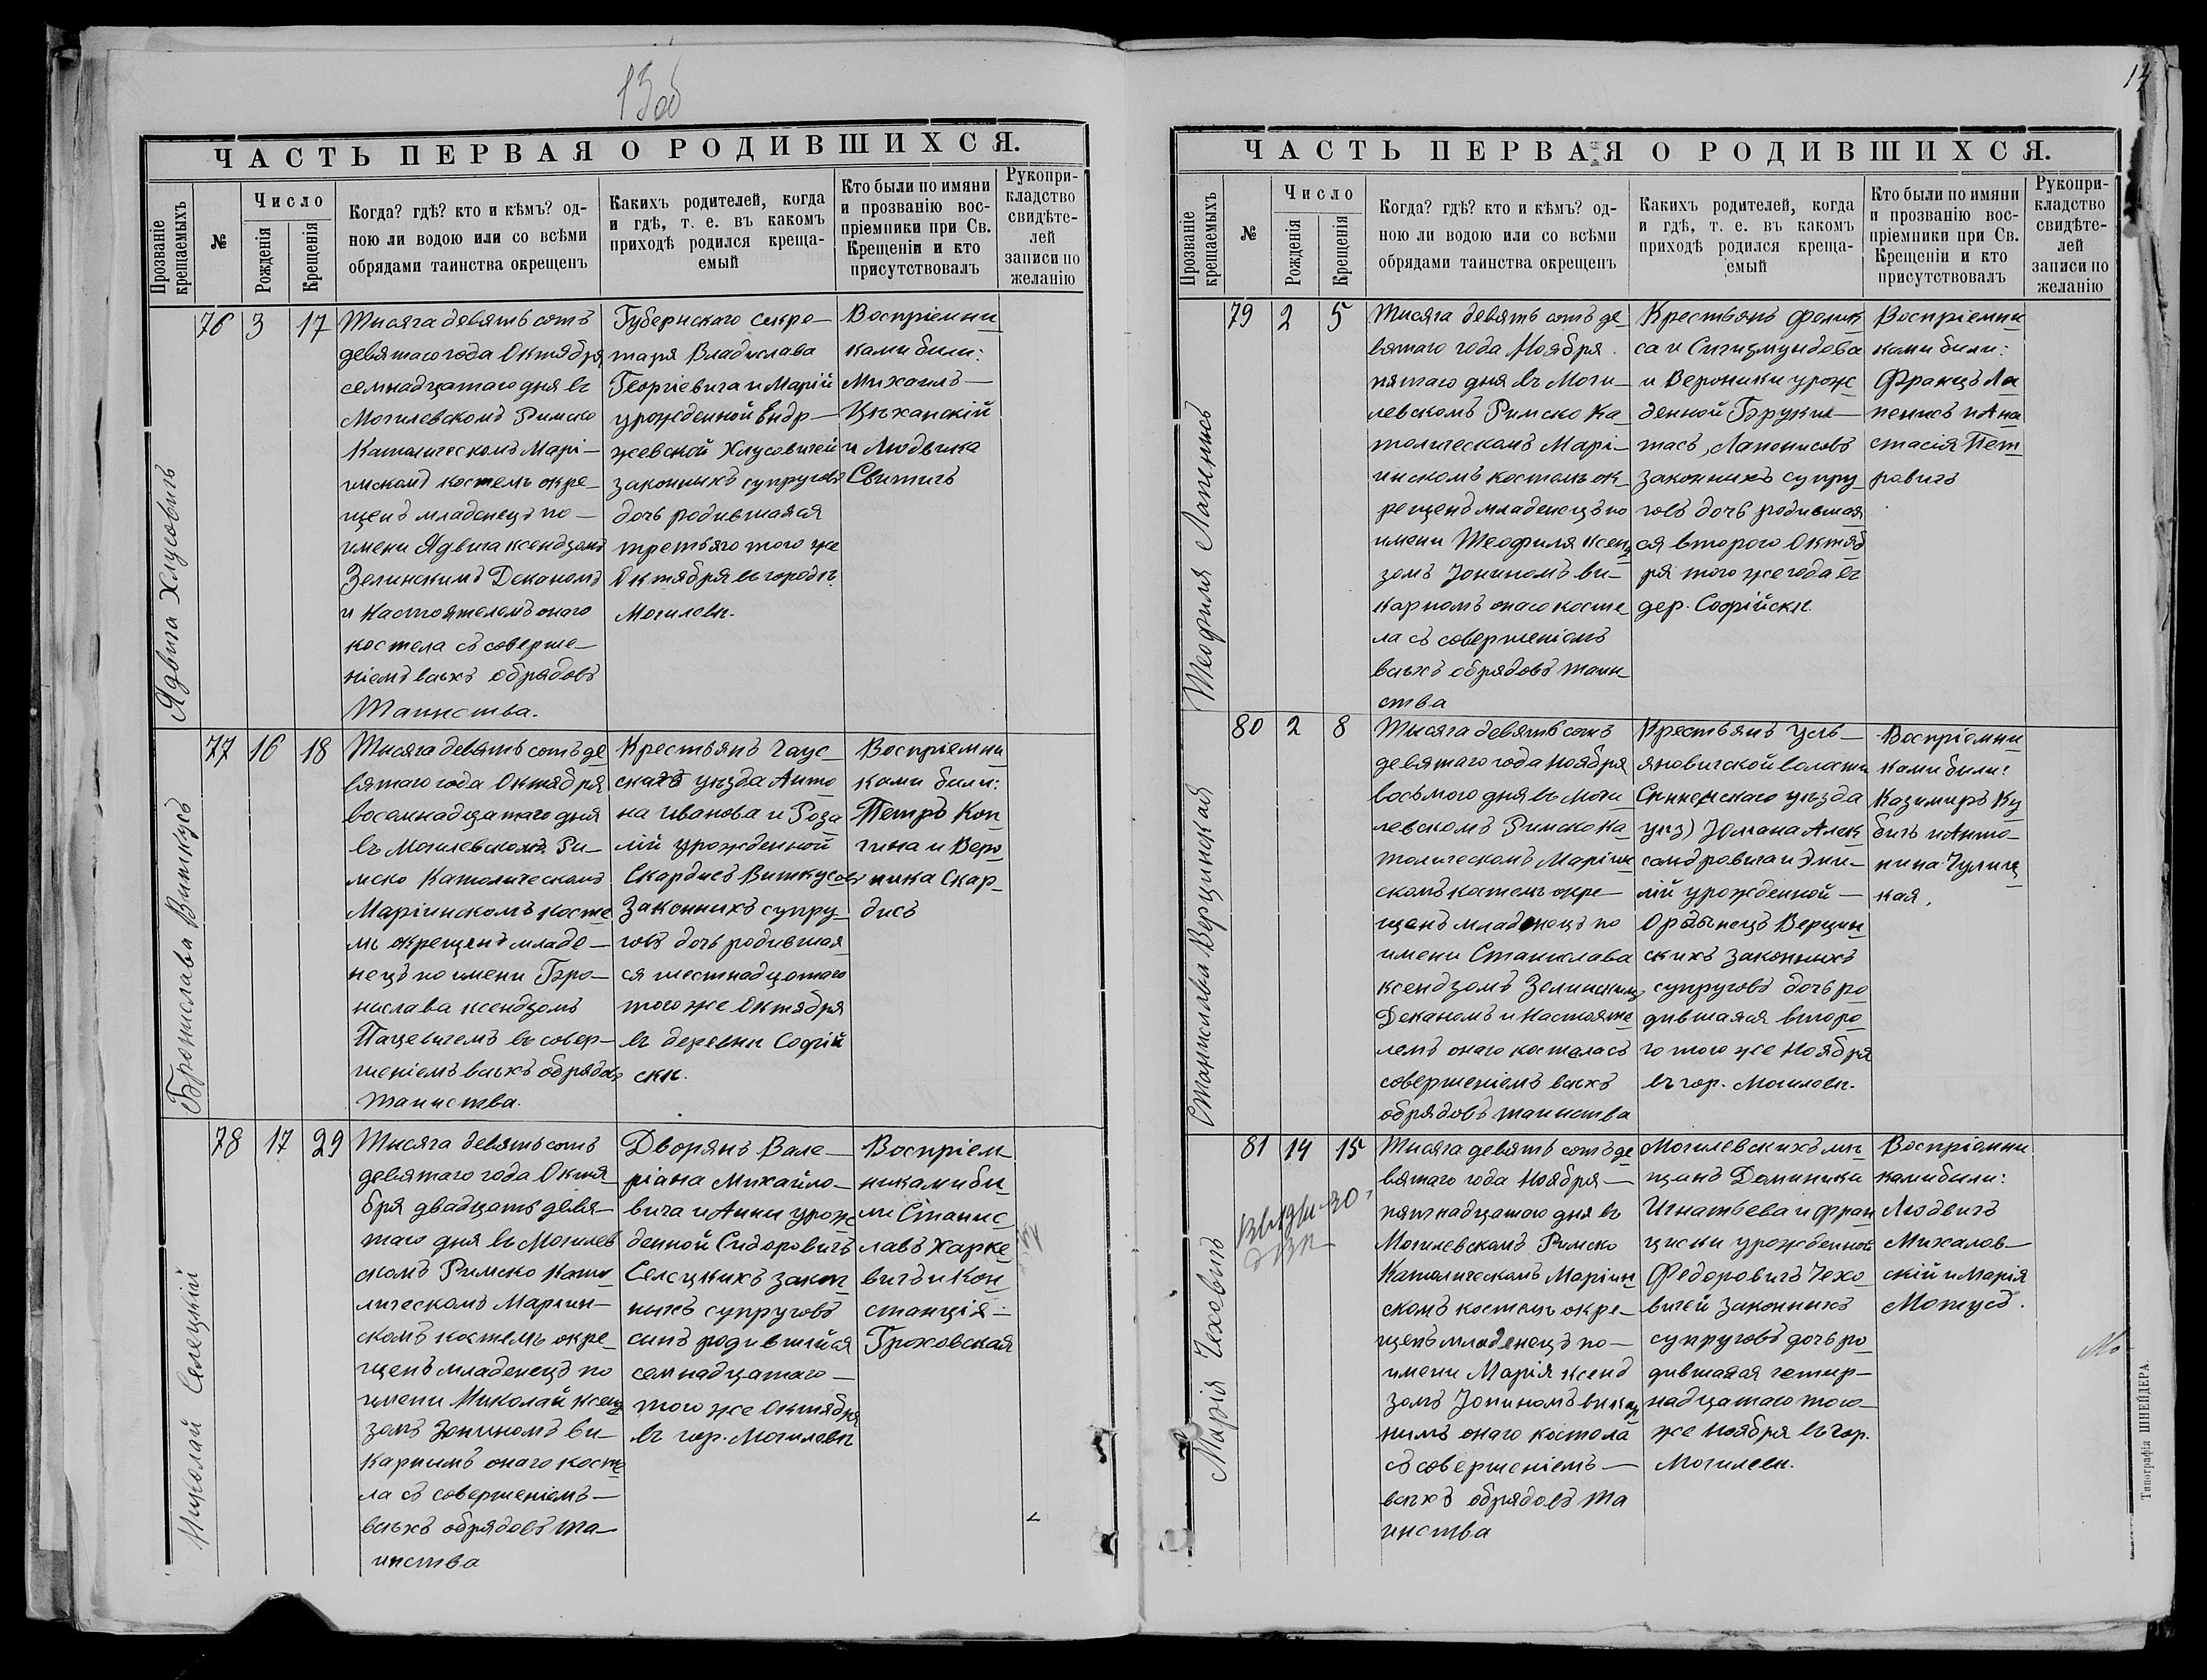 13об
ЧАСТЬ ПЕРВАЯ О РОДИВШИХСЯ.
Прозваніе крещаемыхъ
№
Число
Рожденія
Крещенія
Когда? гдѣ? кто и кѣмъ? од-
ною ли водою или со всѣми
обрядами таинства окрещенъ
Какихъ родителей, когда
и гдѣ, т. е. въ какомъ
приходѣ родился креща-
емый
Кто были по имяни
и прозванію вос-
пріемники при Св.
Крещеніи и кто
присутствовалъ
Рукопри-
кладство
свидѣте-
лей
записи по
желанію
Ядвига Хлусовичъ
76 3 17
Тысяча девятьсотъ
девятаго года Октября
семнадцатаго дня въ
Могилевскомъ Римско
Католическомъ Марі-
инскомъ костелѣ окре-
щенъ младенецъ по-
имени Ядвига ксендзомъ
Зелинскимъ Деканомъ
и Настоятелемъ онаго
костела съ соверше-
ніемъ всѣхъ обрядовъ
Таинства.
Губернскаго Секре-
таря Владислава
Георгіевича и Маріи
урожденной Ендр-
жевской Хлусовичей
законныхъ супруговъ
дочь родившаяся
третьяго того же
Октября въ городѣ
Могилевѣ.
Воспріемни
ками были:
Михаилъ-
Цѣханскій
и Людвика
Свитичъ
Бронислава Виткусъ
77 16 18
Тысяча девятьсотъ де
вятаго года Октября
восемнадцатаго дня
въ Могилевскомъ Ри-
мско Католическомъ
Маріинскомъ косте
лѣ окрещенъ младе-
нецъ по имени Бро-
нислава ксендзомъ
Пацевичемъ въ совер-
шеніемъ всѣхъ обрядовъ
таинства.
Крестьянъ Чаус
скаго уѣзда Анто
на Иванова и Роза
ліи урожденной
Скардисъ Виткусовъ
Законныхъ супру
говъ дочь родившая
ся шестнадцатаго
того же Октября
въ деревни Софій
скѣ.
Воспріемни
ками были:
Петръ Коп
чина и Веро
ника Скар
дисъ
Николай Селецкій
78 17 29
Тысяча девятьсотъ
девятаго года Октя
бря двадцать девя-
таго дня въ Могилев
скомъ Римско Като
лическомъ Маріин-
скомъ костелѣ окре
щенъ младенецъ по
имени Николай ксенд
зомъ Іонинамъ ви-
карнымъ онаго косте
ла съ совершеніемъ-
всѣхъ обрядовъ та-
инства
Дворянъ Вале-
ріана Михайло-
вича и Анны урож
денной Сидоровичъ
Селецкихъ закон
ныхъ супруговъ
сынъ родившійся
семнадцатаго-
того же Октября
въ гор. Могилевѣ
Воспріем
никами бы
ли Станис
лавъ Харке
вичъ и Кон
станція-
Гроховская
14
ЧАСТЬ ПЕРВАЯ О РОДИВШИХСЯ.
Прозваніе крещаемыхъ
№
Число
Рожденія
Крещенія
Когда? гдѣ? кто и кѣмъ? од-
ною ли водою или со всѣми
обрядами таинства окрещенъ
Какихъ родителей, когда
и гдѣ, т. е. въ какомъ
приходѣ родился креща-
емый
Кто были по имяни
и прозванію вос-
пріемники при Св.
Крещеніи и кто
присутствовалъ
Рукопри-
кладство
свидѣте-
лей
записи по
желанію
Теофиля Лапенисъ
79 2 5
Тысяча девятьсотъ де
вятаго года Ноября
пятаго дня въ Моги-
левскомъ Римско Ка
толическомъ Марі-
инскомъ костелѣ ок-
рещенъ младенецъ по
имени Теофиля ксенд
зомъ Іонинамъ ви-
карнымъ онаго косте
ла съ совершеніемъ
всѣхъ обрядовъ таин
ства
Крестьянъ Фелик
са и Сигизмундова
и Вероники урож
денной Брукш-
тасъ, Лапенисовъ
законныхъ супру
говъ дочь родившая
ся второго Октяб
ря того же года въ
дер. Софійскѣ.
Воспріемни
ками были:
Францъ Ла
пенисъ и Ана
стасія Пет
ровичъ
80 2 8
Тысяча девятьсотъ
девятаго года Ноября
восьмого дня въ Моги
левскомъ Римско Ка
толическомъ Маріин
скомъ костелѣ окре-
щенъ младенецъ по
имени Станислава
ксендзомъ Зелинскимъ
Деканомъ и Настояте
лемъ онаго костела съ
совершеніемъ всѣхъ
обрядовъ таинства
Крестьянъ Уль-
яновичской волости
Сѣнненскаго уѣзда
Юліана Алек
сандровича и Эми-
ліи урожденной-
Ордынецъ Верцин
скихъ Законныхъ
супруговъ дочь ро
дившаяся второ
го того же Ноября
въ гор. Могилевѣ.
Воспріемни
ками были:
Казимиръ Ку
бичъ и Анто-
нина Чулиц
кая.
Марія Чеховичъ
81 14 15
Тысяча девятьсотъ де
вятаго года Ноября-
пятнадцатаго дня въ
Могилевскомъ Римско
Католическомъ Маріин
скомъ костелѣ окре-
щенъ младенецъ по-
имени Марія ксенд
зомъ Іонинамъ викар
нымъ онаго костела
съ совершеніемъ-
всѣхъ обрядовъ та
инства
Могилевскихъ мѣ
щанъ Доминика
Игнатьева и Фран
циски урожденной
Федоровичъ Чехо
вичей законныхъ
супруговъ дочь ро
дившаяся четыр-
надцатаго того-
же Ноября въ гор.
Могилевѣ.
Воспріемни
ками были:
Людвигъ
Михалов-
скій и Марія
Мотусъ.
Типографія ШНЕЙДЕРА.